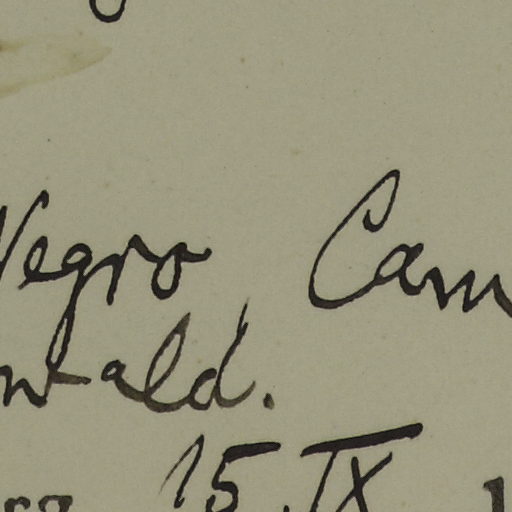 Negro, Cam
wald.
15. IX